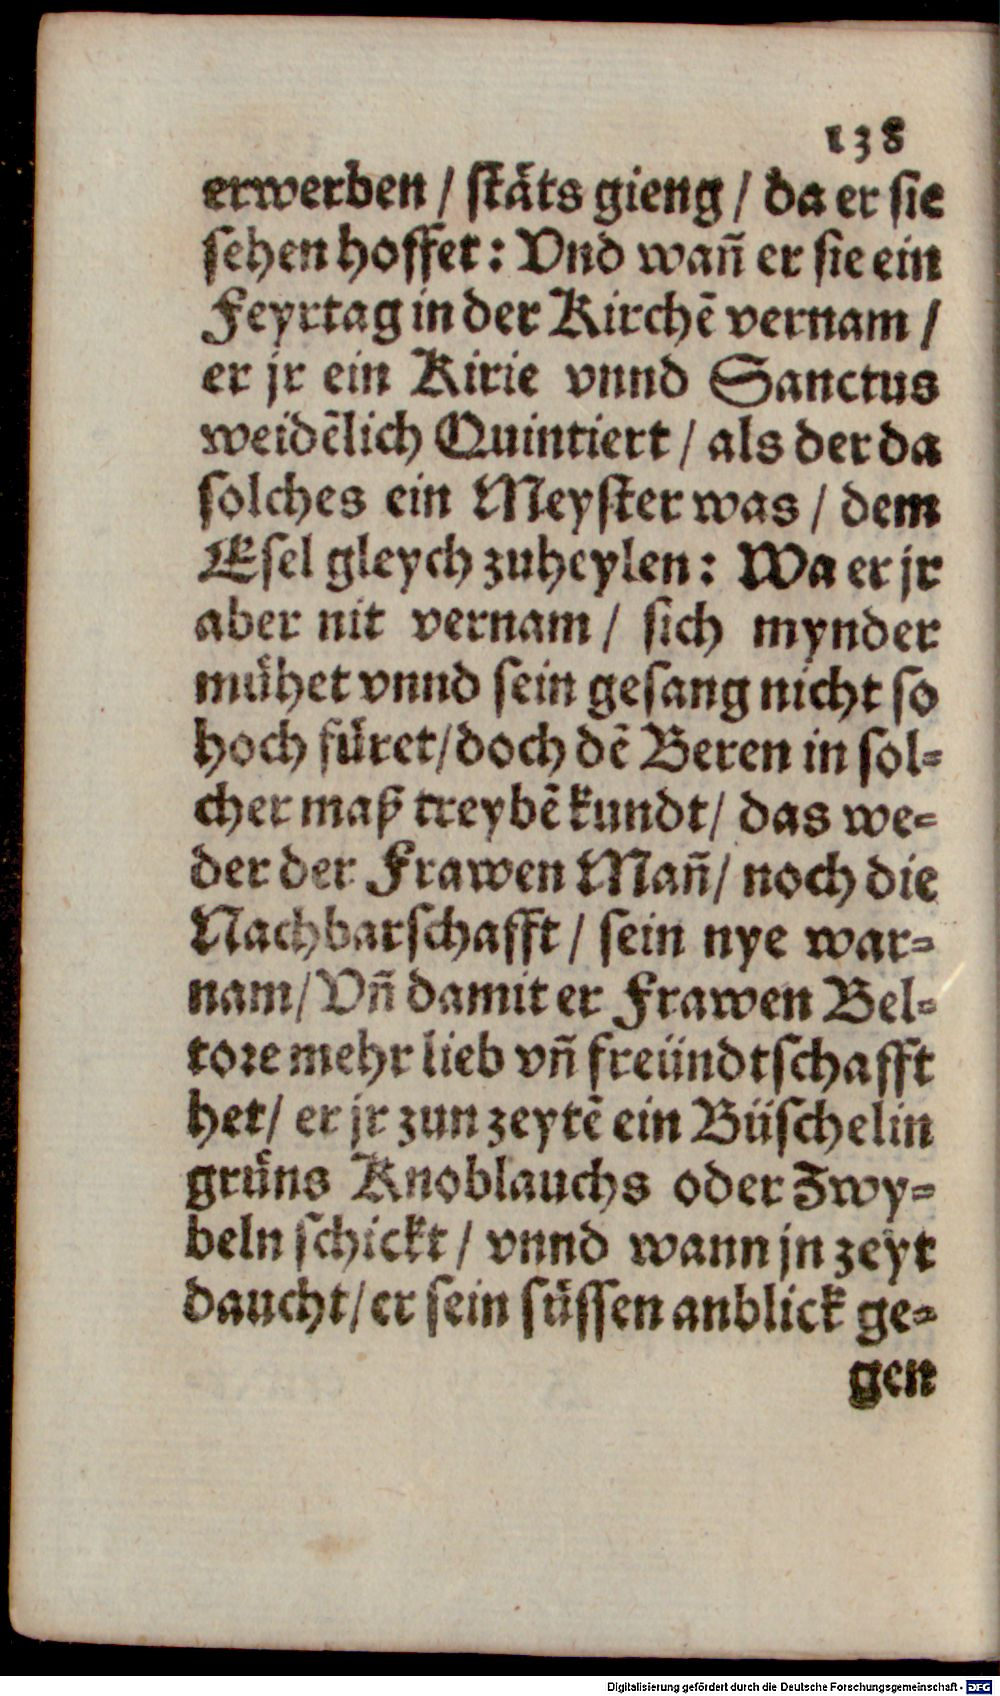 138
erwerben / stäts gieng / da er sie
sehen hoffet: Vnd wañ er sie ein
Feyrtag in der Kirchẽ vernam /
er jr ein Kirie vnnd Sanctus
weidẽlich Quintiert / als der da
solches ein Meyster was / dem
Esel gleych zuheylen: Wa er jr
aber nit vernam / sich mynder
muͤhet vnnd sein gesang nicht so
hoch fuͤret / doch dẽ Beren in sol-
cher maß treybẽ kundt / das we-
der der Frawen Mañ / noch die
Nachbarschafft / sein nye war-
nam / Vñ damit er Frawen Bel-
tore mehr lieb vñ freündtschafft
het / er jr zun zeytẽ ein Büschelin
gruͤns Knoblauchs oder Zwy-
beln schickt / vnnd wann jn zeyt
daucht / er sein suͤssen anblick ge-
gen
Digitalisierung gefördert durch die Deutsche Forschungsgemeinschaft - DFG